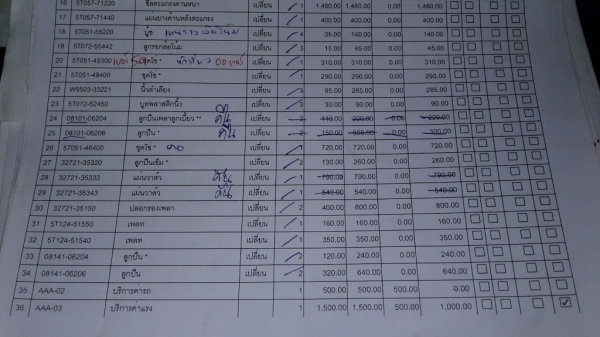 16 5T057-71220 ชุดตะแกรงคานหน้า เปลี่ยน 1 1,480.00 1,480.00 0.00 1,480.00
17 5T057-71440 แผ่นยางคานหลังตะแกรง เปลี่ยน 1 400.00 400.00 0.00 400.00
18 5T051-55220 นู้ช เปลี่ยน 4 35.00 140.00 0.00 140.00
19 5T072-55442 ลูกรอกล้อโน้ม เปลี่ยน 3 15.00 45.00 0.00 45.00
20 5T051-49300 ชุดโซ่ * เปลี่ยน 1 310.00 310.00 0.00 310.00
21 5T051-49400 ชุดโซ่ * เปลี่ยน 1 290.00 290.00 0.00 290.00
22 W9503-33221 นิ้วลำเลียง เปลี่ยน 3 95.00 285.00 0.00 285.00
23 5T072-52450 บูทพลาสติกนิ้ว เปลี่ยน 3 30.00 90.00 0.00 90.00
24 08101-06204 ลูกปืนเพลาลูกเบี้ยว * คืน เปลี่ยน 2 220.00 0.00 220.00
25 08101-06206 ลูกปืน * คืน เปลี่ยน 2 150.00 300.00 0.00 300.00
26 5T051-46400 ชุดโซ่ * เปลี่ยน 1 720.00 720.00 0.00 720.00
27 32721-35320 ลูกปืนเข็ม * เปลี่ยน 2 130.00 260.00 0.00 260.00
28 32721-35333 แผ่นวาล์ว คืน เปลี่ยน 1 790.00 790.00 0.00 790.00
29 32721-35343 แผ่นวาล์ว คืน เปลี่ยน 1 540.00 540.00 0.00 540.00
30 32721-35150 ปลอกรองเพลา เปลี่ยน 2 400.00 800.00 0.00 800.00
31 5T124-51550 เพลท เปลี่ยน 1 160.00 160.00 0.00 160.00
32 5T124-51540 เพลท เปลี่ยน 1 350.00 350.00 0.00 350.00
33 08141-06204 ลูกปืน * เปลี่ยน 2 120.00 240.00 0.00 240.00
34 08141-06206 ลูกปืน * เปลี่ยน 2 320.00 640.00 0.00 640.00
35 AAA-02 บริการค่ารถ 1 500.00 500.00 500.00 0.00
36 AAA-03 บริการค่าแรง 1 1,500.00 1,500.00 500.00 1,000.00